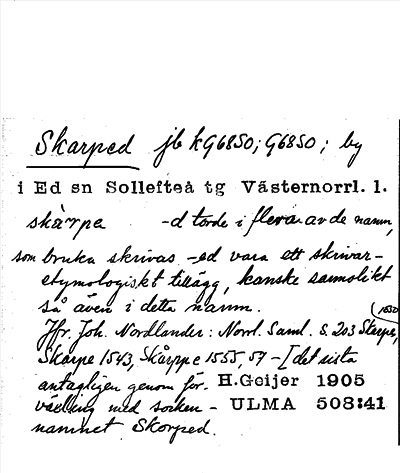 Skarped jb kG6850; G6850; by
i Ed sn Sollefteå tg Västernorrl. l.
skàrpe -d torde i flera av de namn,
som bruka skrivas -ed vara ett skrivar-
etymologiskt tillägg, kanske sannolikt
så även i detta namn.
Jfr. Joh. Nordlander: Norrl. Saml. s. 203 Skarpe, 1550
Skarpe 1543, Skårppe 1555, 57 - [det sista
antagligen genom för- H.Geijer 1905
växling med socken- ULMA 508:41
namnet Skorped.